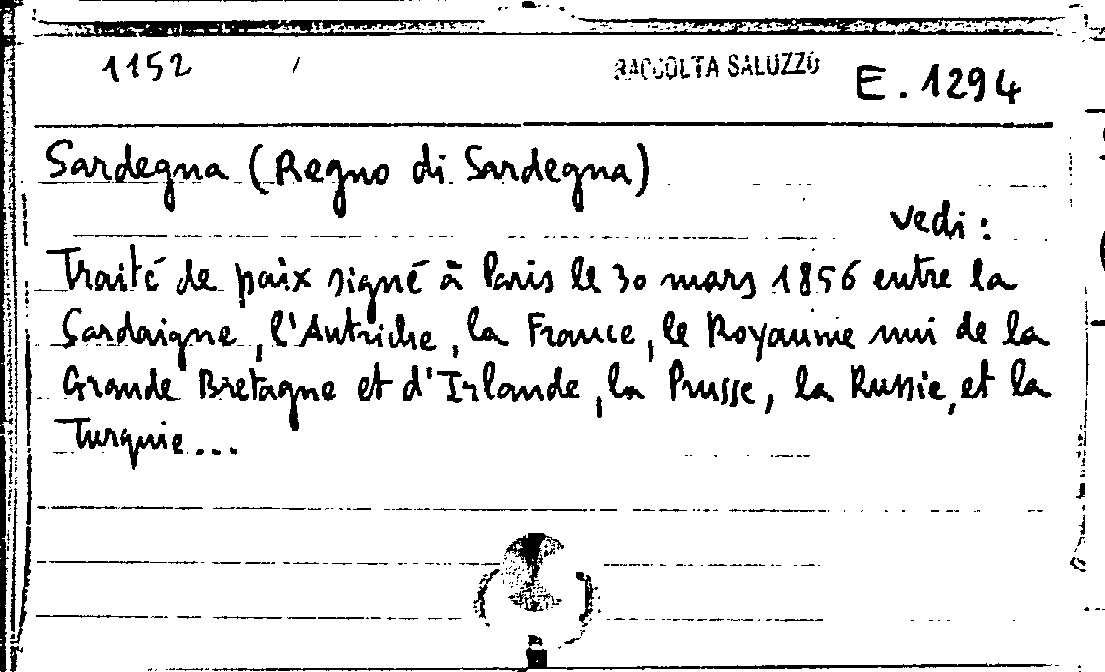 1152 / RACCOLTA SALUZZO E. 1294
Sardegna (Regno di Sardegna)
vedi:
Traité de paix signé à Paris le 30 mars 1856 entre la
Sardaigne, l'Autriche, la France, le Royaume uni de la
Grande Bretagne et d'Irlande, la Prusse, la Russie, et la
Turquie...